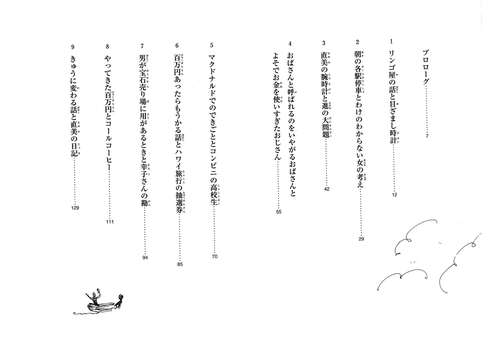 プロローグ 7
1 リンゴ屋の話と目ざまし時計 12
2 朝の各駅停車とわけのわからない女の考え 29
3 直美の腕時計と進の大問題 42
4 おばさんと呼ばれるのをいやがるおばさんと
よそでお金を使いすぎたおじさん 55
5 マクドナルドでのできごととコンビニの高校生 70
6 百万円あったらもうかる話とハワイ旅行の抽選券 85
7 男が宝石売り場に用があるときと幸子さんの勘 94
8 やってきた百万円とコールコーヒー 111
9 きゅうに変わる話と直美の日記 129